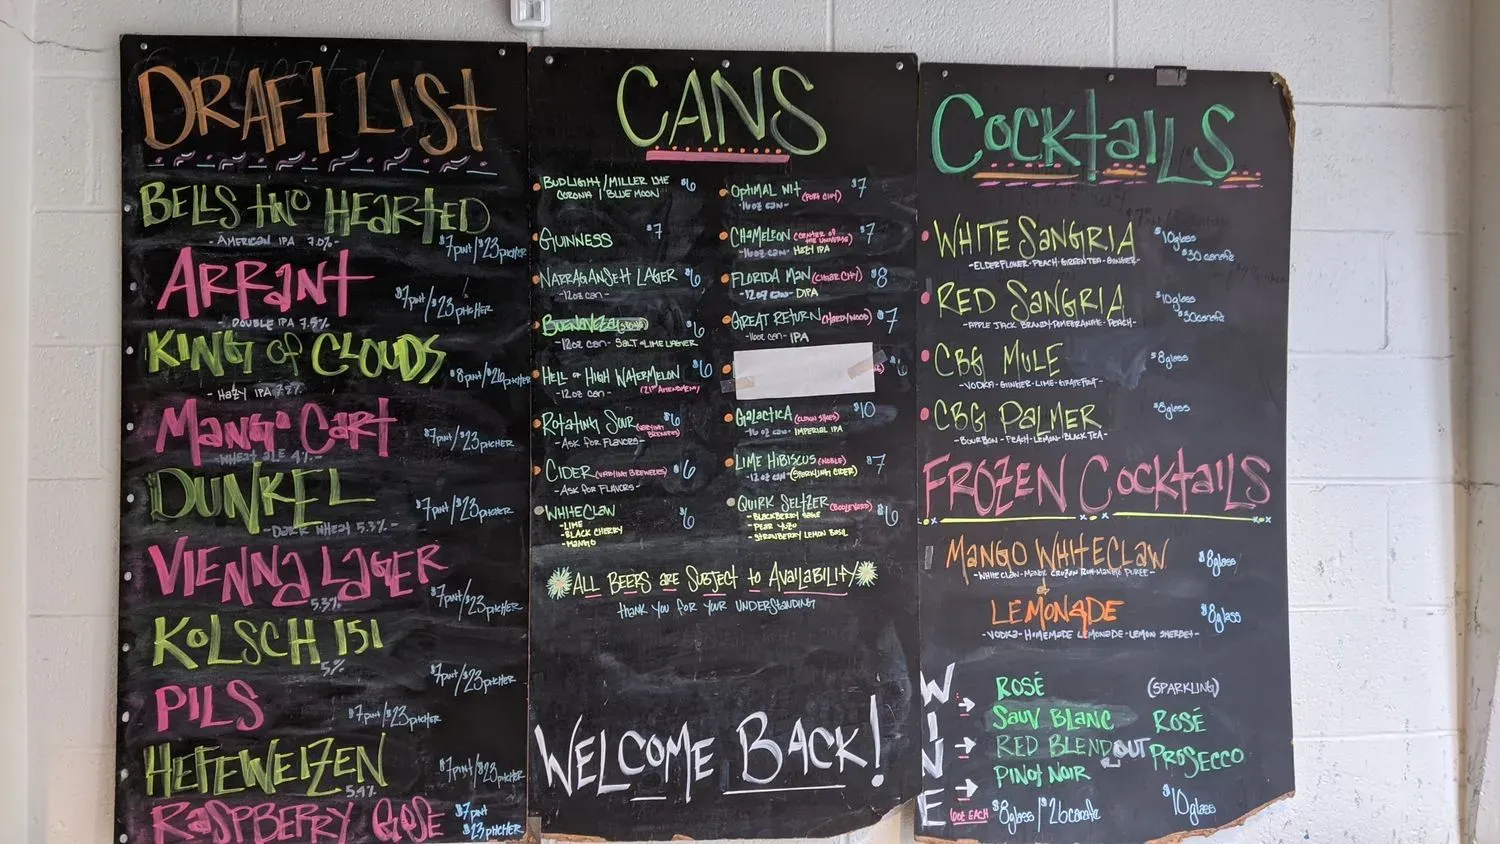 DRAFT LIST
BELLS TWO HEARTED
- AMERICAN IPA 7.0% -
$7pint/$23pitcher
ARRANT
- DOUBLE IPA 7.5%
$7pint/$23pitcher
KING of CLOUDS
- HAZY IPA
$8pint/$26pitcher
MANGO CART
- WHEAT ALE 4% -
$7pint/$23pitcher
DUNKEL
- DARK WHEAT 5.3% -
$7pint/$23pitcher
VIENNA LAGER
5.3%
$7pint/$23pitcher
KOLSCH 151
5%
$7pint/$23pitcher
PILS
$7pint/$23pitcher
HEFEWEIZEN
5.4%
$7pint/$23pitcher
RASPBERRY GOSE
$7pint
$23pitcher
CANS
BUD LIGHT / MILLER LITE $6
CORONA / BLUE MOON
GUINNESS $7
NARRAGANSETT LAGER $6
- 12oz can -
BUENAVEZA $6
- 12oz can - SALT & LIME LAGER
HELL or HIGH WATERMELON $6
- 12oz can - (21st AMENDMENT)
ROTATING SOUR (VARYING BREWERIES) $6
- ASK FOR FLAVORS -
CIDER (VARYING BREWERIES) $6
- ASK FOR FLAVORS -
WHITECLAW $6
- LIME
- BLACK CHERRY
- MANGO
OPTIMAL WIT (PORT CITY) $7
- 16oz can -
CHAMELEON (CENTER OF THE UNIVERSE) $7
- 16oz can - HAZY IPA
FLORIDA MAN (CIGAR CITY) $8
- 12oz can - DIPA
GREAT RETURN (HARDYWOOD) $7
- 16oz can - IPA
GALACTICA (CLOWN SHOES) $10
- 16oz can - IMPERIAL IPA
LIME HIBISCUS (NOBLE) $7
- 12oz can - (SPARKLING CIDER)
QUIRK SELTZER (BOULEVARD) $6
- BLACKBERRY SAGE
- PEAR YUZU
- STRAWBERRY LEMON BASIL
ALL BEERS ARE SUBJECT to AVAILABILITY
thank you for your UNDERSTANDING
WELCOME BACK!
COCKTAILS
WHITE SANGRIA $10glass
- ELDERFLOWER - PEACH - GREEN TEA - GINGER - $30 carafe
RED SANGRIA $10glass
- APPLE JACK BRANDY - POMEGRANATE - PEACH - $30carafe
CBG MULE $8glass
- VODKA - GINGER - LIME - GRAPEFRUIT -
CBG PALMER $8glass
- BOURBON - PEACH - LEMON - BLACK TEA -
FROZEN COCKTAILS
MANGO WHITECLAW $8glass
- WHITE CLAW - MANGO CRUZAN RUM - MANGO PUREE -
LEMONADE $8glass
- VODKA - HOMEMADE LEMONADE - LEMON SHERBET -
WINE
ROSÉ
SAUV BLANC
RED BLEND OUT
PINOT NOIR
6oz EACH $8glass/$26carafe
(SPARKLING)
ROSÉ
PROSECCO
$10glass